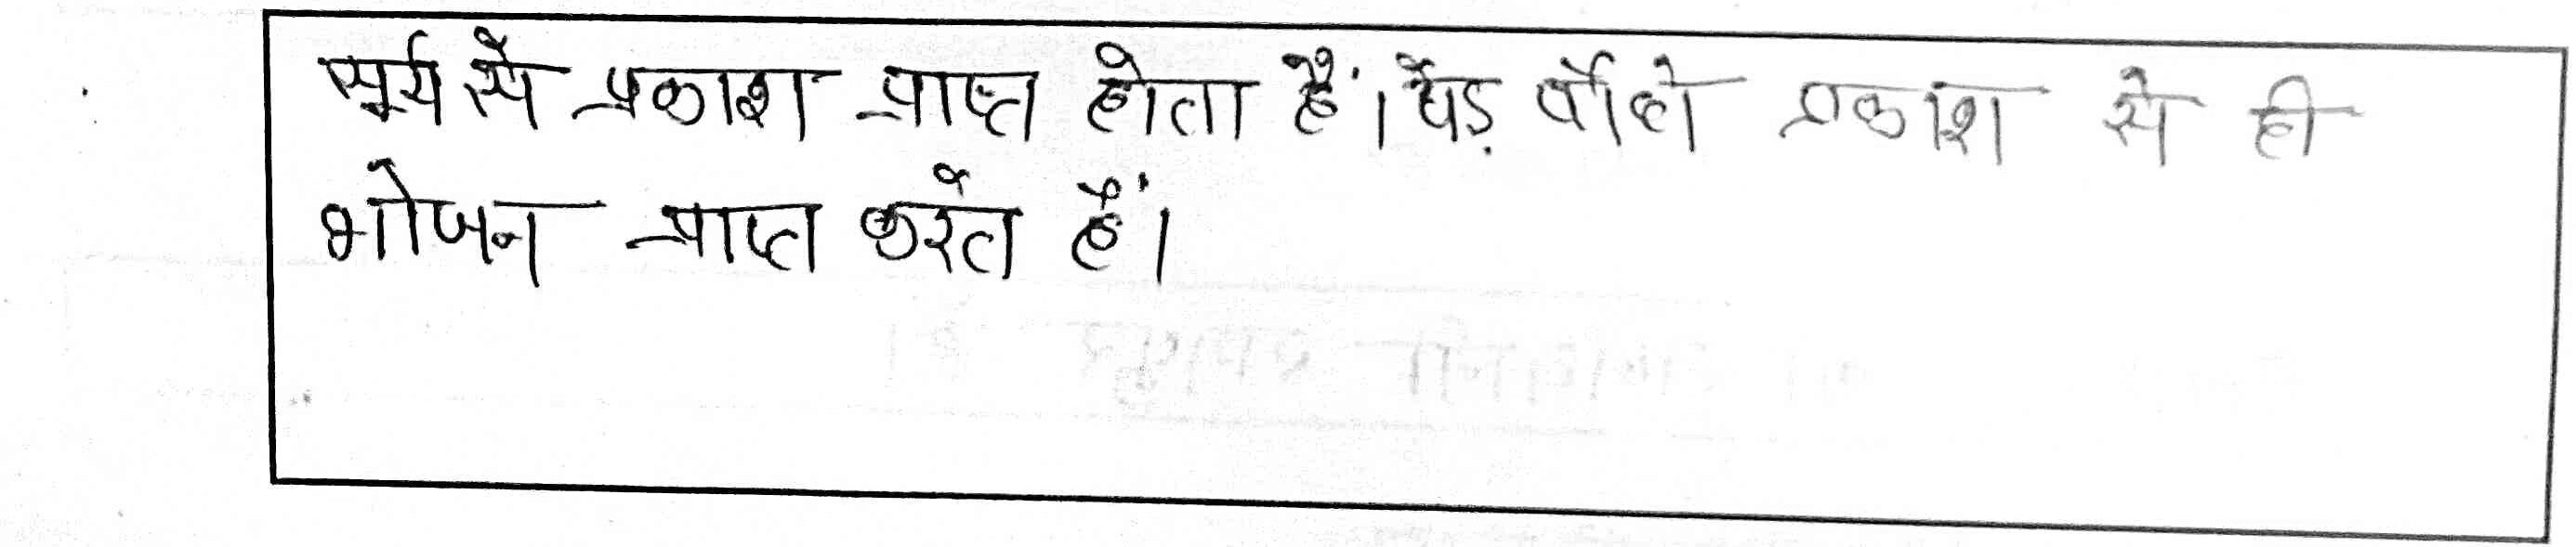 सूर्य से प्रकाश प्राप्त होता हैं। पेड़ पौधो प्रकाश से ही
भोजन प्राप्त करते हैं।